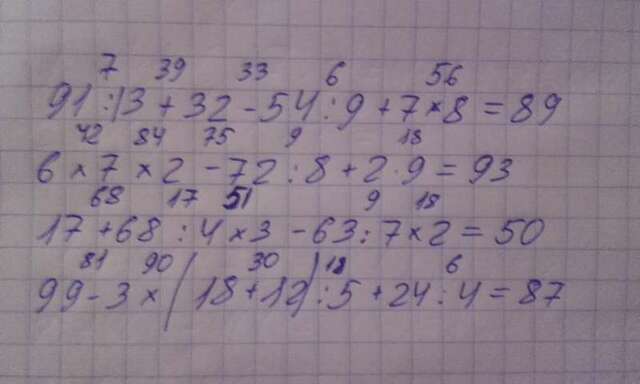 7 39 33 6 56
91:13+32-54:9+7×8=89
42 84 75 9 18
6×7×2-72:8+2·9=93
68 17 51 9 18
17+68:4×3-63:7×2=50
81 90 30 18 6
99-3×(18+12):5+24:4=87